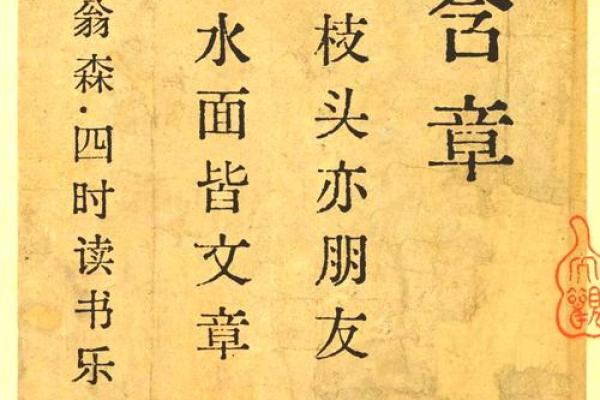 含章
枝头亦朋友
水面皆文章
翁森·四时读书乐